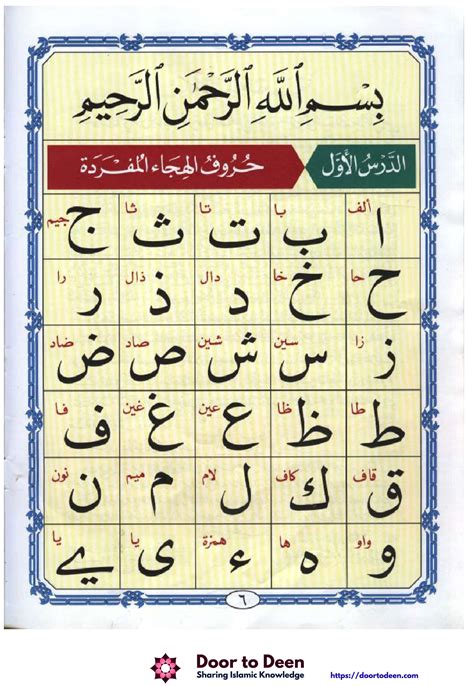 بِسْمِ ٱللَّهِ ٱلرَّحْمَٰنِ ٱلرَّحِيمِ
الدَّرْسُ الأَوَّل حُرُوفُ الهِجَاءِ المُفْرَدَة
ألف با تا ثا جيم
ا ب ت ث ج
حا خا دال ذال را
ح خ د ذ ر
زا سين شين صاد ضاد
ز س ش ص ض
طا ظا عين غين فا
ط ظ ع غ ف
قاف كاف لام ميم نون
ق ك ل م ن
واو ها همزة يا يا
و ه ء ى ے
٦
Door to Deen
Sharing Islamic Knowledge
https://doortodeen.com